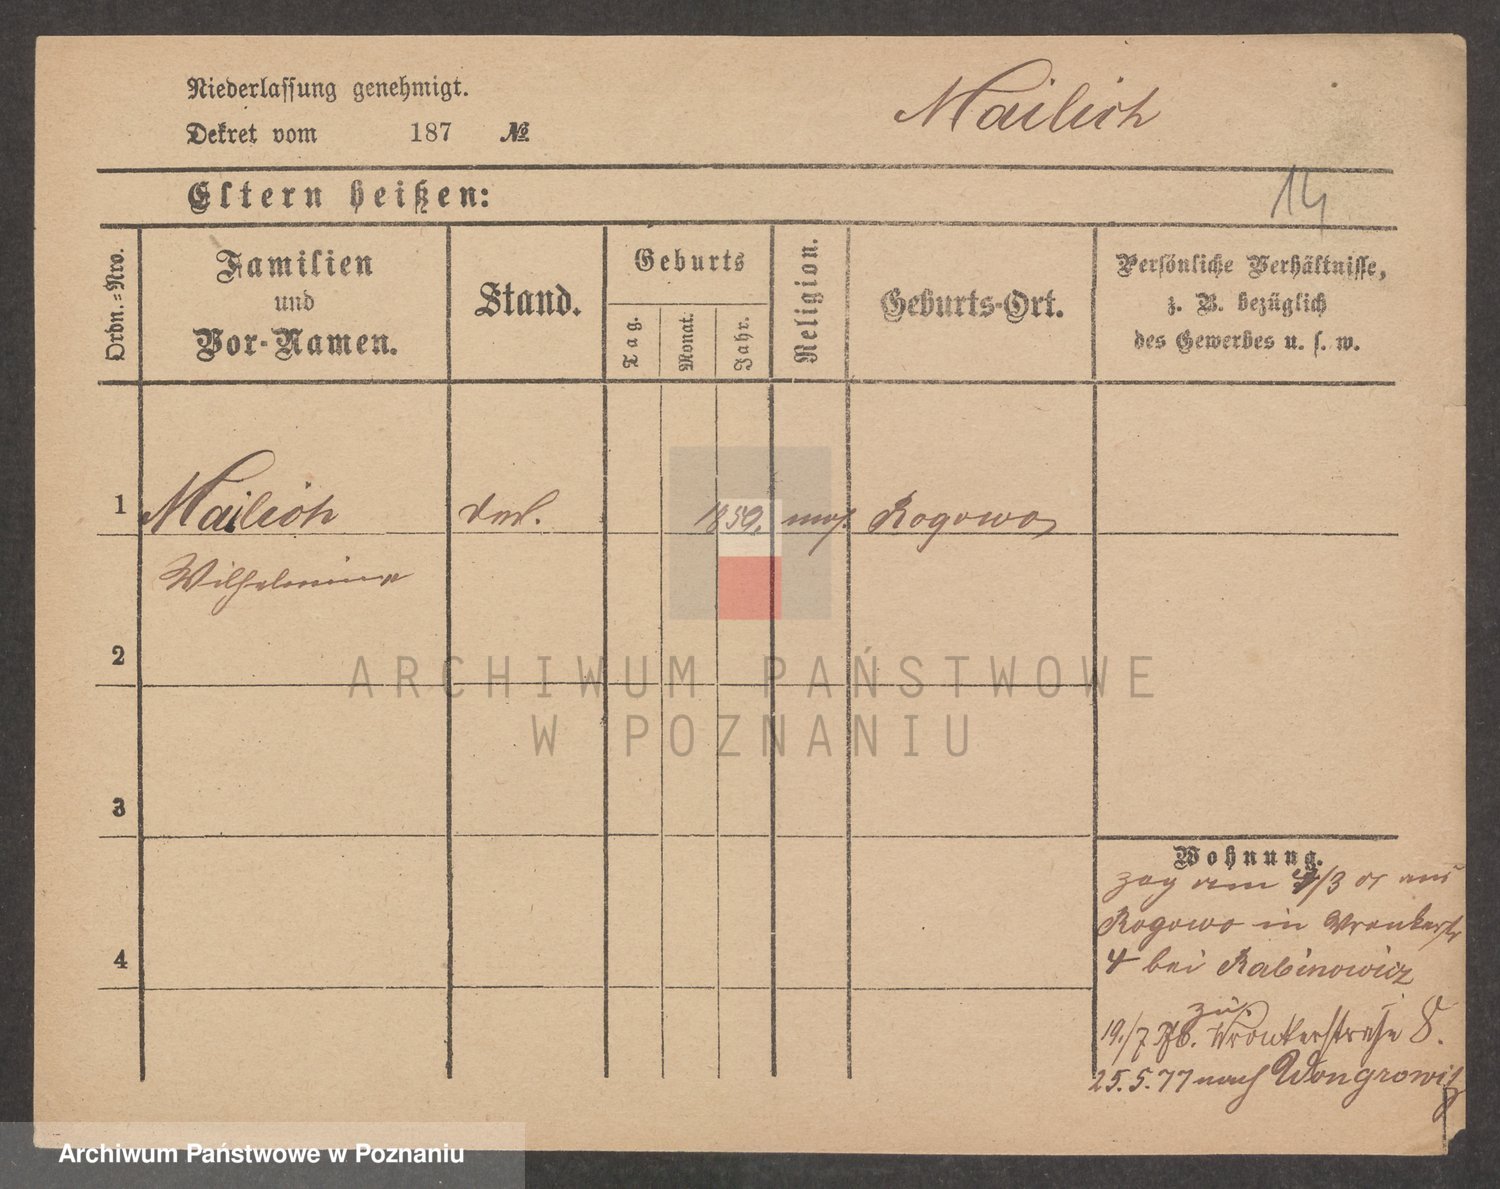 Niederlassung genehmigt.
Dekret vom 187 №
Mailich
Eltern heißen:
14
Ordn.=Nro.
Familien
und
Vor-Namen.
Stand.
Geburts
Tag.
Monat.
Jahr.
Religion.
Geburts-Ort.
Persönliche Verhältnisse,
z. B. bezüglich
des Gewerbes u. s. w.
1 Mailich 1859. mos. Rogowo
Wilhelmine
2
3
4
Wohnung.
zog am /3 cr aus
Rogowo in Wronkerstr
4 bei Rabinowicz
zu
19./7 76. Wronkerstraße 8.
25.5.77 nach Wongrowitz
ARCHIWUM PAŃSTWOWE
W POZNANIU
Archiwum Państwowe w Poznaniu